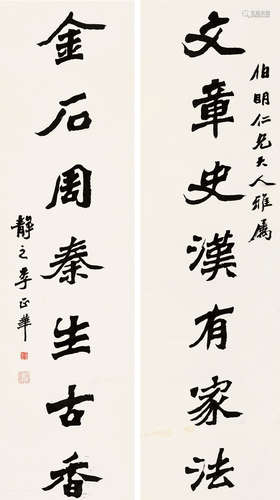 伯明仁兄大人雅属
文章史漢有家法
金石周秦生古香
静之李正華